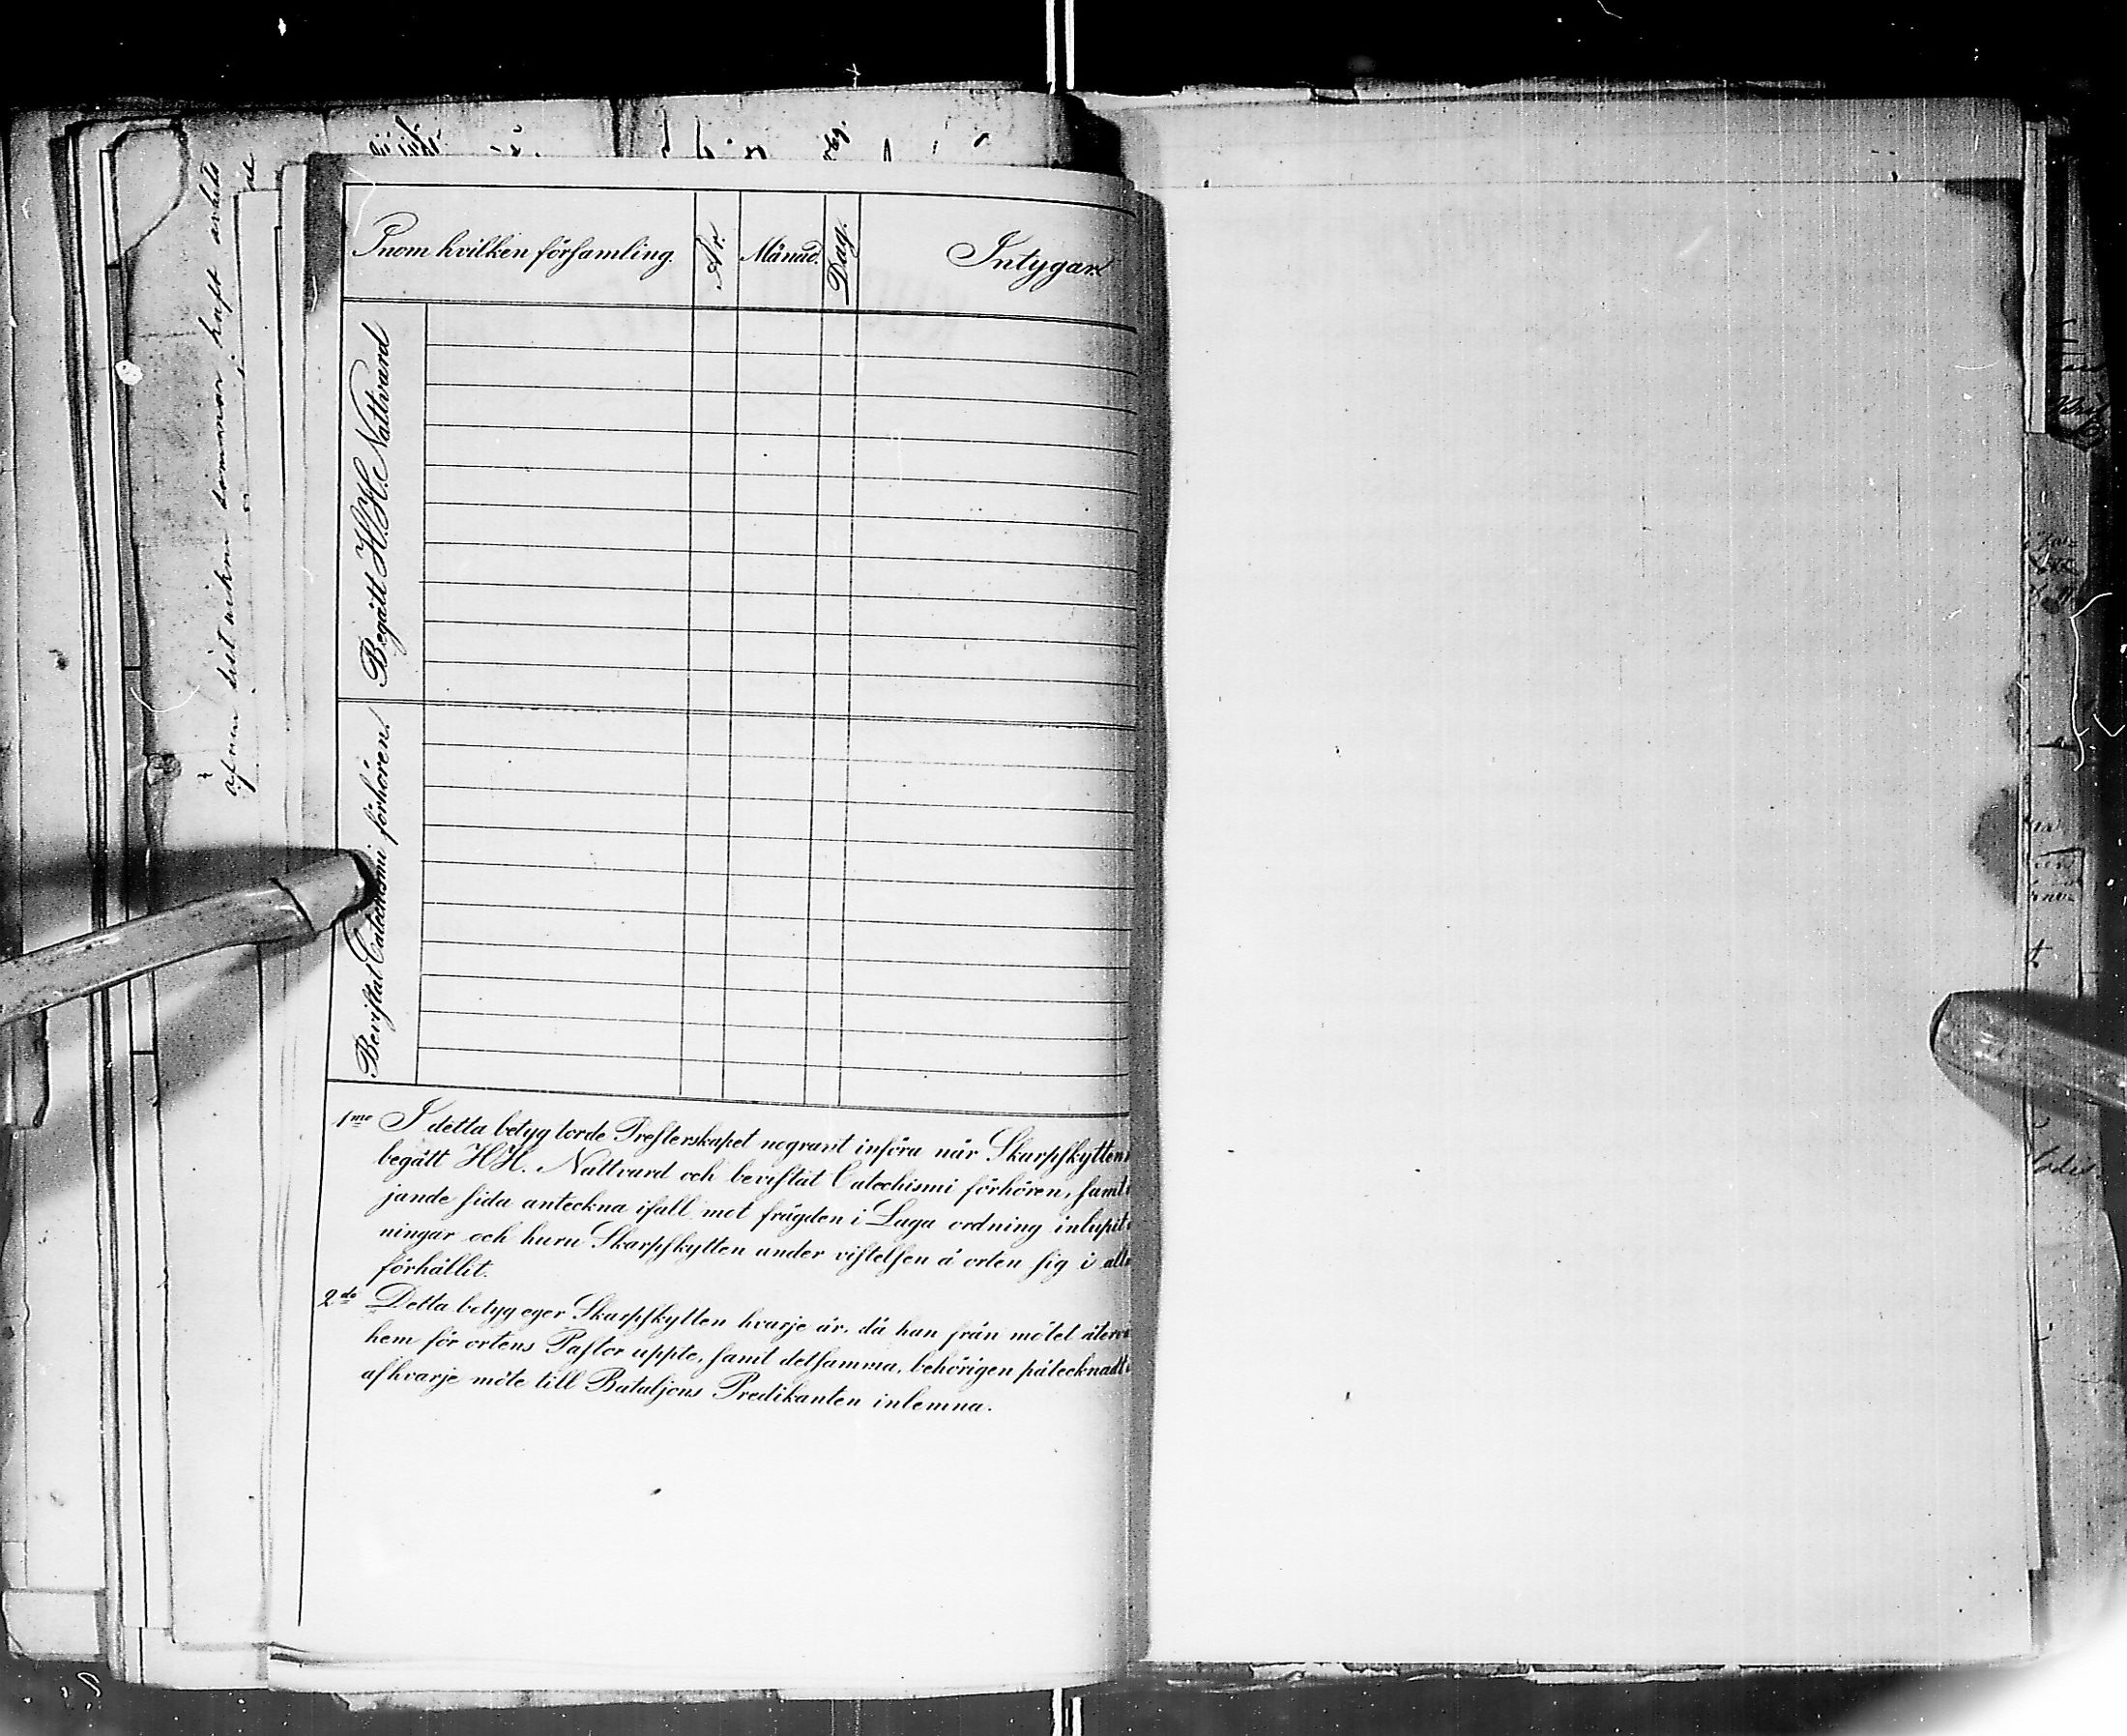 Inom hvilken församling.
År.
Månad.
Dag.
Intygar.
Begått H.H. Nattvard
Bevistat Catechismi förhören.
1mo I detta betyg torde Presterskapet nogrant införa när Skarpskytten
begått H.H. Nattvard och bevistat Catechismi förhören, samt
jande sida anteckna ifall mot frägden i Laga ordning inlupit
ningar och huru Skarpskytten under vistelsen å orten sig i
förhållit.
2do Detta betyg eger Skarpskytten hvarje år, då han från mötet
hem för ortens Pastor uppte, samt detsamma, behörigen påtecknadt
af hvarje möte till Bataljons Predikanten inlemna.
äfven sist veken sommar, haft arbete